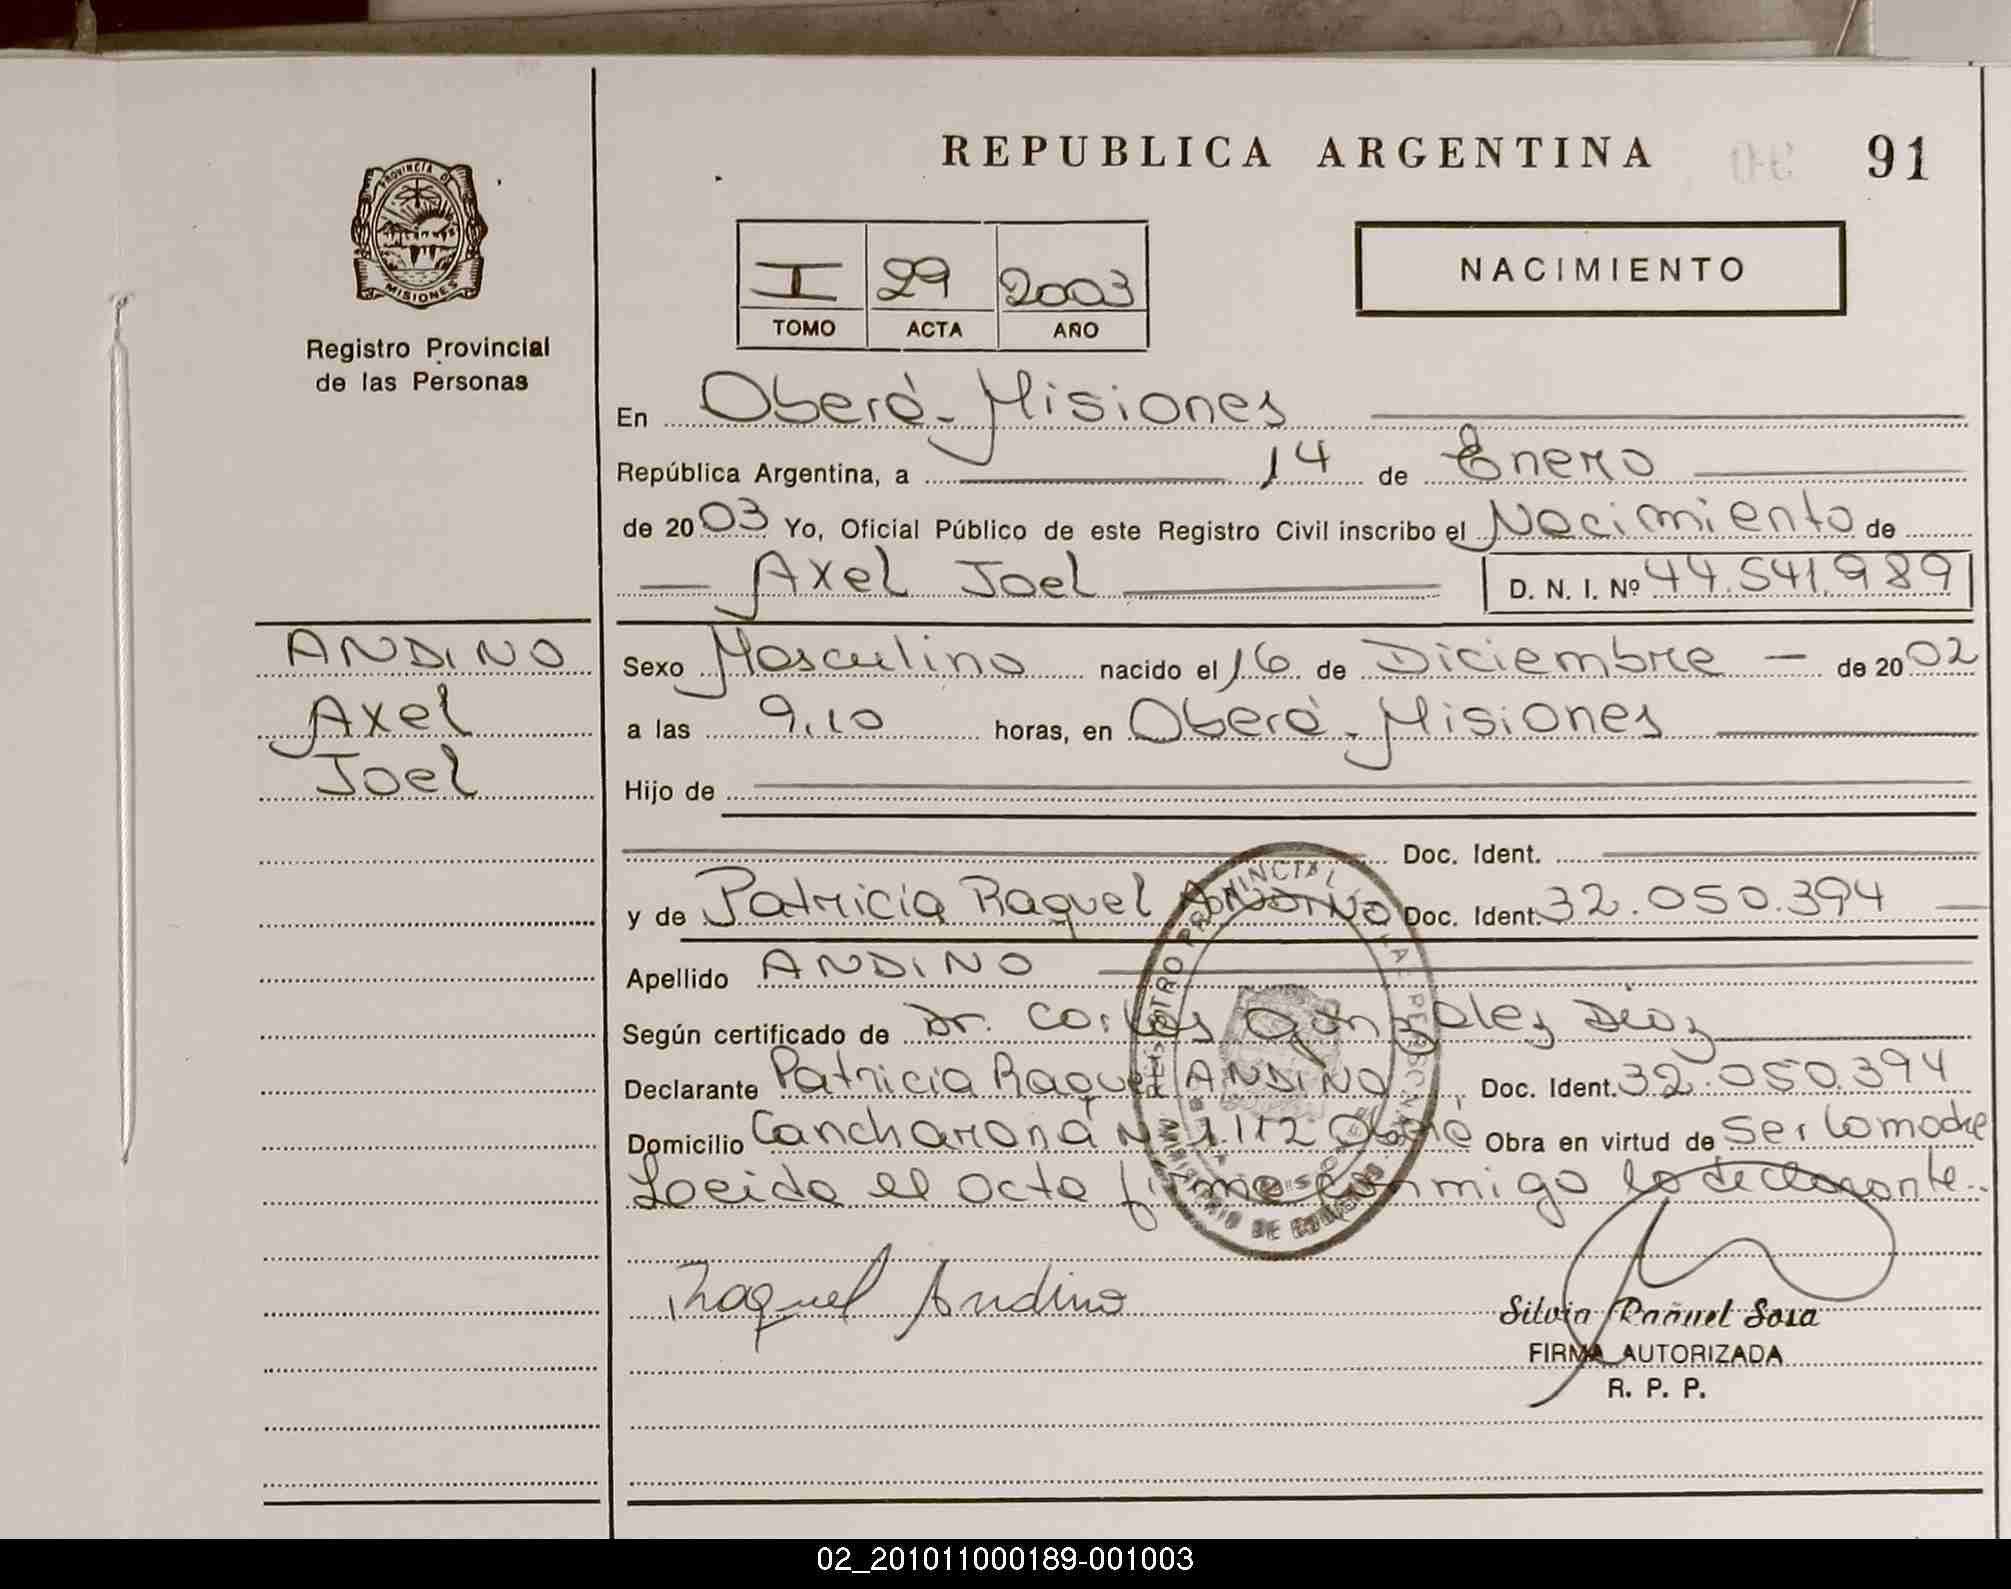 REPUBLICA ARGENTINA
91
PROVINCIA DE
MISIONES
Registro Provincial
de las Personas
I 29 2003
TOMO ACTA AÑO
NACIMIENTO
En Oberá - Misiones
República Argentina, a 14 de Enero
de 2003 Yo, Oficial Público de este Registro Civil inscribo el Nacimiento de
Axel Joel D. N. I. Nº 44.541.989
ANDINO
Axel
Joel
Sexo Masculino nacido el 16 de Diciembre - de 2002
a las 9,10 horas, en Oberá - Misiones
Hijo de
Doc. Ident.
y de Patricia Raquel ANDINO Doc. Ident. 32.050.394
Apellido ANDINO
Según certificado de Dr. Carlos Gonzalez Diaz
Declarante Patricia Raquel ANDINO, Doc. Ident. 32.050.394
Domicilio Nº 1.112 Oberá Obra en virtud de ser la madre
Leida el acta firma conmigo la declarante.
REGISTRO PROVINCIAL DE LAS PERSONAS
MINISTERIO DE GOBIERNO
Raquel Andino
Silvia Raquel Sosa
FIRMA AUTORIZADA
R. P. P.
02_201011000189-001003